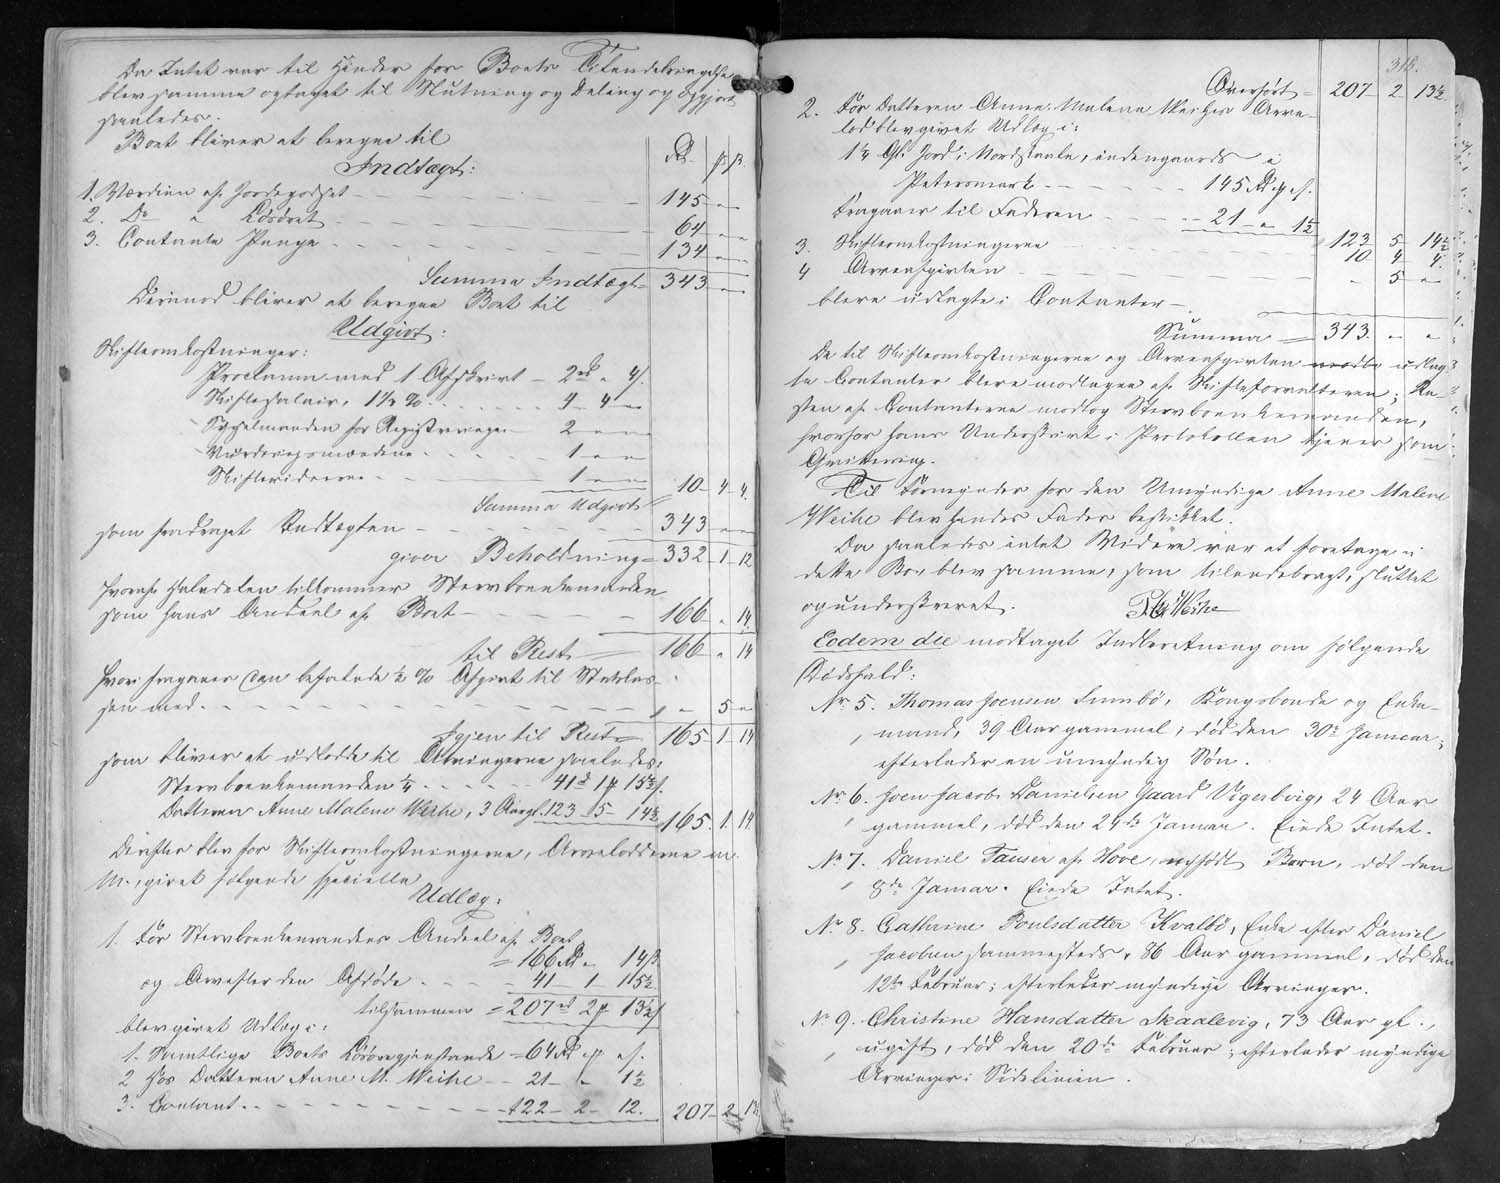 Da Intet var til Hinder for Boets Tilendebringelse
blev samme optaget til Slutning og Deling og opgjort
saaledes.
Boet bliver at beregne til
Indtægt: Rd. ꝑ ß.
1. Værdien af Jordegodset - - - 145 " "
2. Do " Løsøret - - - 64 " "
3. Contante Penge - - - 134 " "
Summa Indtægt = 343 " "
Derimod bliver at beregne Boet til
Udgivt:
Skifteomkostninger:
Proclama med 1 Afskrivt - 2 rd " 4 ß.
Skiftesalair, 1¼ % - - - 4 - 4 -
Sysselmanden for Registreringen - 2 - "
Vurderingsmændene - - - 1 - "
Skifteskriveren - - - 1 - " 10 - 4 - 4.
Summa Udgivt
som fradraget Indtægten - - - 343 " "
giver Beholdning = 332 - 1 - 12
hvoraf Halvdelen tilkommer Stervboenkemanden
som hans Andeel af Boet - - - 166 " 14
til Rest = 166 " 14
hvori fragaaer den befalede ½ % Afgivt til Statskas-
sen med - - - " 5 "
igjen til Rest = 165 - 1 - 14
som bliver at udlodde til Arvingerne saaledes:
Stervboenkemanden ¼ - - - 41 rd 1 ꝑ 15½ ß.
Datteren Anne Malene Weihe, 3 Aar gl. 123 - 5 - 14½ 165. 1. 14.
Derefter blev for Skifteomkostningerne, Arvelodderne m.
M., givet følgende specielle
Udlæg:
1. For Stervboenkemandens Andeel af Boet
= 166 Rd " 14 ß
og Arv efter den Afdøde - - - 41 - 1 - 15½
tilsammen = 207 rd 2 ꝑ 13½ ß
blev givet Udlæg i:
1. Samtlige Boets Løsøregjenstande = 64 Rd " ꝑ " ß.
2 Hos Datteren Anne M. Weihe - 21 - " 1½
3. Contant - - - 122 - 2 - 12. 207 - 2 - 13½
318.
Overført = 207 - 2 - 13½
2. For Datteren Anne Malene Weihes Arve-
lod blev givet Udlæg i:
1¼ Gl. Jord i Nordskaale, indengaards i
Petersmark - - - 145 Rd " ꝑ " ß.
Fragaaer til Faderen - - - 21 - " 1½
123 5 14½
3. Skifteomkostningerne - - - 10 4 4.
4 Arveafgivten - - - " 5 "
bleve udlagte i Contanter -
Summa = 343. " "
De til Skifteomkostningerne og Arveafgivten modto udlag
te Contanter bleve modtagne af Skifteforvalteren; Re-
sten af Contanterne modtog Stervboenkemanden,
hvorfor hans Underskrivt i Protokollen tjener som
Qvittering.
Til Formynder for den Umyndige Anne Malene
Weihe blev hendes Fader beskikket.
Da saaledes intet Videre var at foretage i
dette Bo, blev samme, som tilendebragt, sluttet
og underskrevet. Weihe
Eodem die modtaget Indberetning om følgende
Dødsfald:
No. 5. Thomas Joensen Sumbø, Kongsbonde og Enke-
mand, 39 Aar gammel, død den 30te Januar;
efterlader en umyndig Søn.
No. 6. Joen Jacob Danielsen Gaard Vigerbvig, 24 Aar
gammel, død den 24de Januar. Eiede Intet.
No. 7. Daniel Tausen af Hove, nyfødt Barn, død den
8de Januar. Eiede Intet.
No. 8. Cathrine Poulsdatter Hvalbø, Enke efter Daniel
Jacobsen sammesteds, 86 Aar gammel, død den
12te Februar; efterlader myndige Arvinger.
No. 9. Christine Hansdatter Skaalevig, 73 Aar gl.,
ugift, død den 20de Februar; efterlader myndige
Arvinger i Sidelinien.